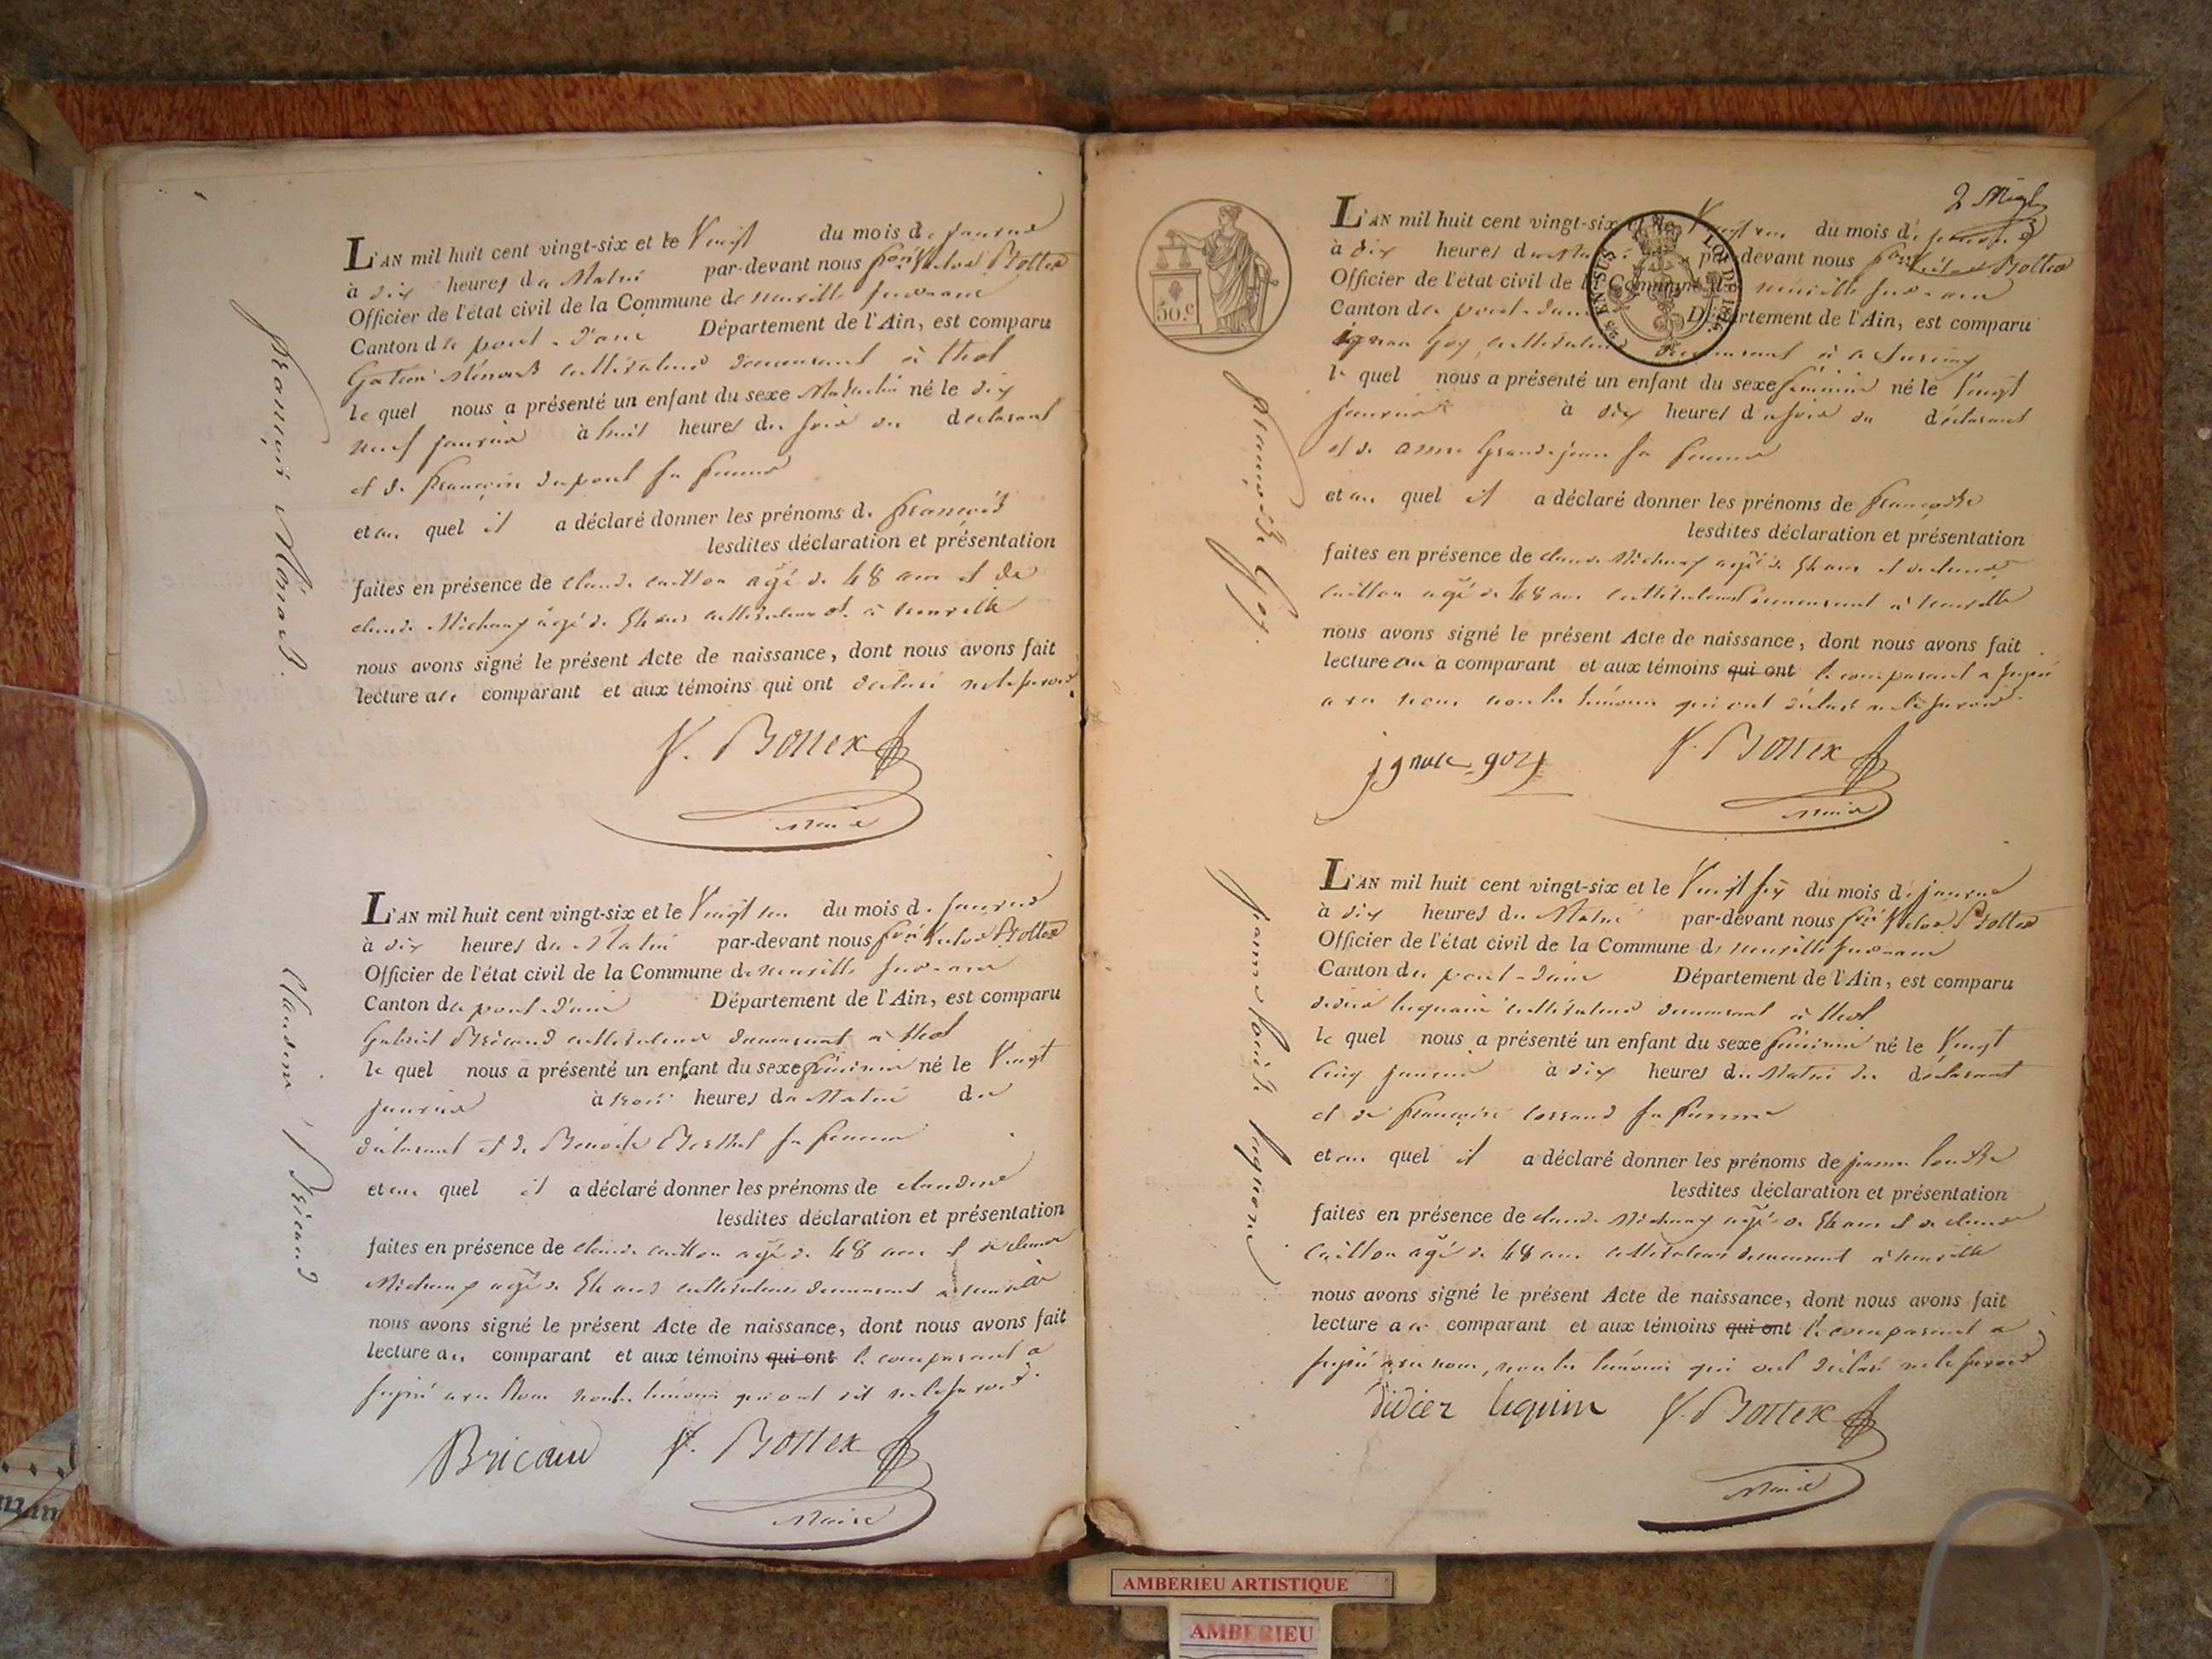 François Mónard.
L'AN mil huit cent vingt-six et le Vingt du mois de janvier
à dix heures du Matin par-devant nous Victor Bottex
Officier de l'état civil de la Commune de neuville sur-ain
Canton de pont-d'ain Département de l'Ain, est comparu
cultivateur demeurant à thol
le quel nous a présenté un enfant du sexe Masculin né le dix
neuf janvier à huit heures du soir du déclarant
et de françoise dupont sa femme
et au quel il a déclaré donner les prénoms de françois
lesdites déclaration et présentation
faites en présence de claude caillon agé de 48 ans et de
claude Michaux agé de ans cultivateurs à neuville
nous avons signé le présent Acte de naissance, dont nous avons fait
lecture au comparant et aux témoins qui ont déclaré ne le savoir
V. Bottex
Maire
Claudine Bricaud
L'AN mil huit cent vingt-six et le Vingt un du mois de janvier
à dix heures du Matin par-devant nous Victor Bottex
Officier de l'état civil de la Commune de neuville sur-ain
Canton de pont-d'ain Département de l'Ain, est comparu
Gabriel Bricaud cultivateur demeurant à thol
le quel nous a présenté un enfant du sexe féminin né le Vingt
janvier à trois heures du Matin du
déclarant et de Benoite Berthet sa femme
et au quel il a déclaré donner les prénoms de claudine
lesdites déclaration et présentation
faites en présence de claude caillon agé de 48 ans et de claude
Michaux agé de ans cultivateurs demeurant à neuville
nous avons signé le présent Acte de naissance, dont nous avons fait
lecture au comparant et aux témoins qui ont le comparant a
signé avec Nous non les témoins qui ont dit ne le savoir.
Bricaud V. Bottex
Maire
50.c
LOI DE 1816.
EN SUS
françoise Goy.
L'AN mil huit cent vingt-six et le Vingt un du mois de janvier
à dix heures du Matin par-devant nous Victor Bottex
Officier de l'état civil de la Commune de neuville sur-ain
Canton de pont-d'ain Département de l'Ain, est comparu
ignace Goy cultivateur demeurant à
le quel nous a présenté un enfant du sexe féminin né le Vingt
janvier à dix heures du soir du déclarant
et de anne Grandjean sa femme
et au quel il a déclaré donner les prénoms de françoise
lesdites déclaration et présentation
faites en présence de claude Michaux agé de ans et de claude
caillon agé de 48 ans cultivateurs demeurant à neuville
nous avons signé le présent Acte de naissance, dont nous avons fait
lecture au comparant et aux témoins qui ont le comparant a signé
avec nous non les témoins qui ont déclaré ne le savoir.
jgnace goy V. Bottex
Maire
jeanne louise lequin
L'AN mil huit cent vingt-six et le Vingt six du mois de janvier
à dix heures du Matin par-devant nous Victor Bottex
Officier de l'état civil de la Commune de neuville sur-ain
Canton du pont-d'ain Département de l'Ain, est comparu
didier lequin cultivateur demeurant à thol
le quel nous a présenté un enfant du sexe féminin né le Vingt
cinq janvier à dix heures du Matin du déclarant
et de françoise sa femme
et au quel il a déclaré donner les prénoms de jeanne louise
lesdites déclaration et présentation
faites en présence de claude Michaux agé de ans et de claude
Caillon agé de 48 ans cultivateurs demeurant à neuville
nous avons signé le présent Acte de naissance, dont nous avons fait
lecture au comparant et aux témoins qui ont le comparant a
signé avec nous, non les témoins qui ont déclaré ne le savoir
didier lequin V. Bottex
Maire
AMBERIEU ARTISTIQUE
AMBERIEU